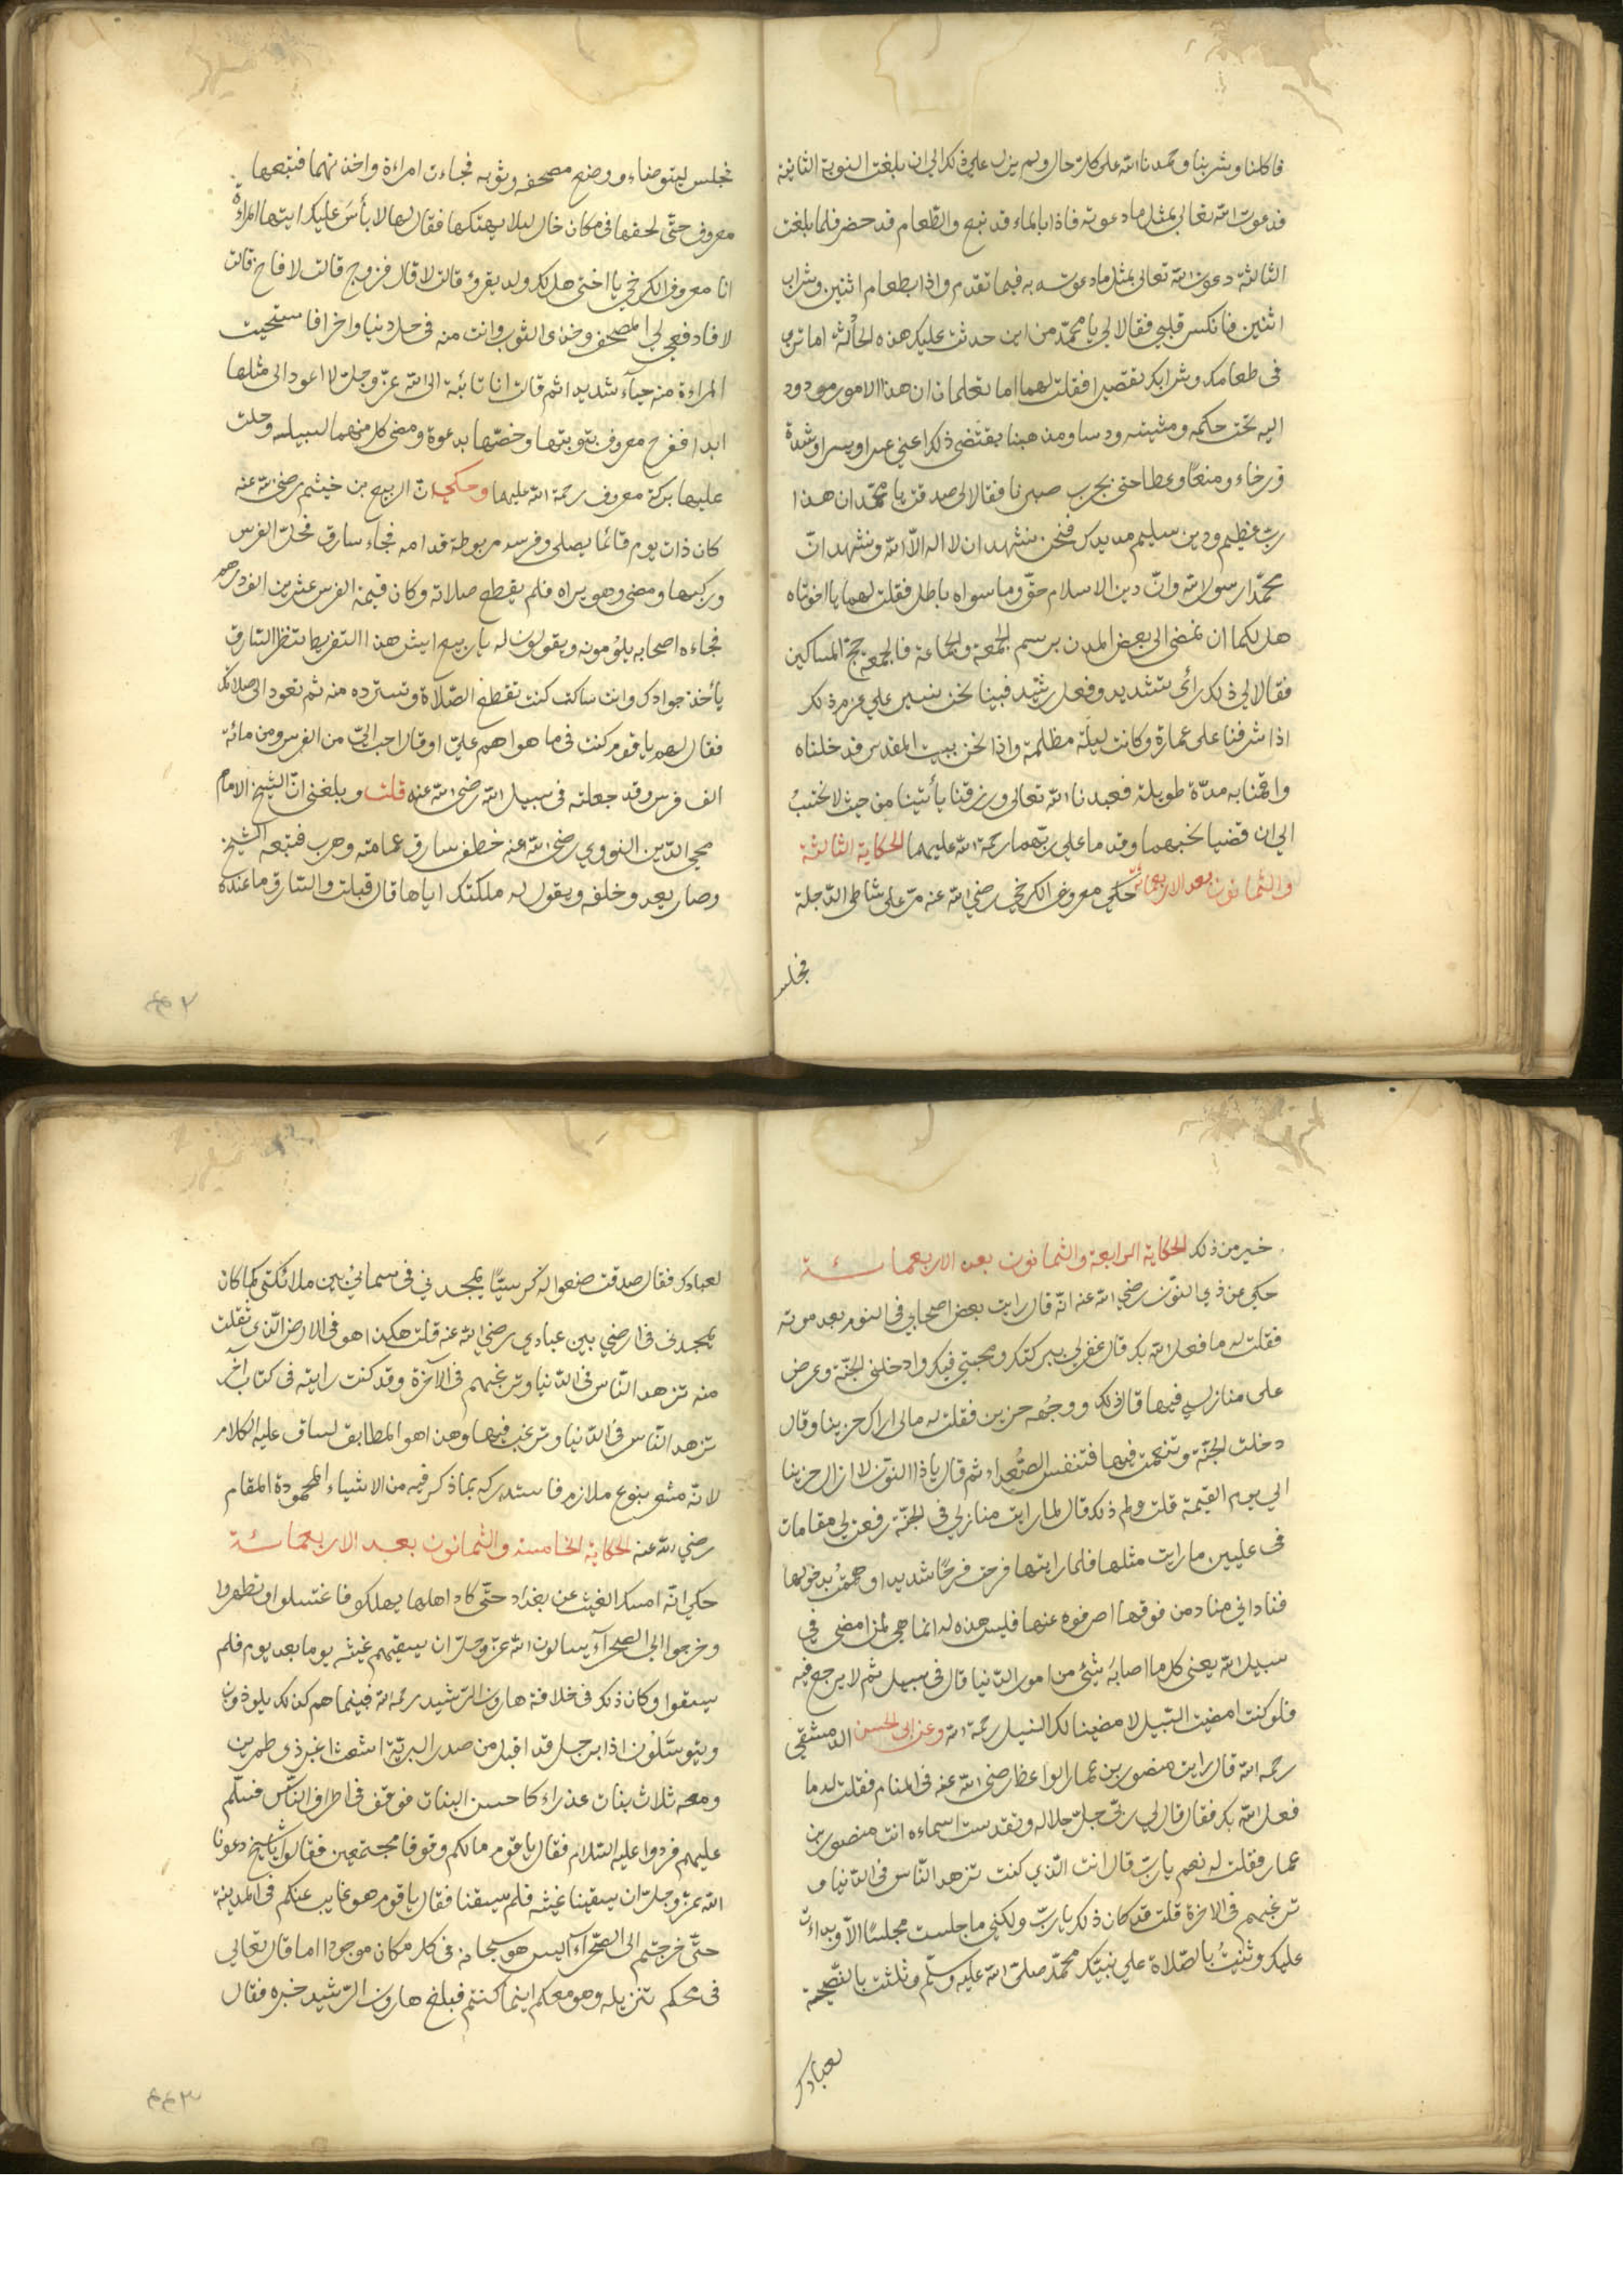 فاكلنا وشربنا وحمدنا الله على كل حال ولم يزل علي ذلك الى ان بلغت النوبة الثانية
فدعوت الله تعالى بمثل ما دعوته فاذا بالماء قد نبع والطعام قد حضر فلما بلغت
الثالثة دعوت الله تعالى بمثل ما دعوته به فيما تقدم واذا بطعام اثنين وشراب
اثنين فانكسر قلبي فقالا لي يا محمّد من اين حدثت عليك هذه الحالة اما ترى
فى طعامك وشرابك تقصيرا فقلت لهما اما تعلمان ان هذا الامور مردود
اليه تحت حكمه ومشيئته ودسا ومن هبنا يقتضى ذلك اعني عسرا ويسرا وشدة
ورخاء ومنعًا وعطا حتى يجرب صبرنا فقالا لى صدقت يا محمّد ان هذا
ربّ عظيم ودين سليم فنحن نشهد ان لا اله الّا الله ونشهد انّ
محمّدا رسول الله وانّ دين الاسلام حقّ وما سواه باطل فقلت لهما يا اخوتاه
هل لكما ان نمضى الى بعض المدن برسم الجمعة والجماعة فالجمعة حج المساكين
فقالا لى ذلك رأى سديد وفعل رشيد فبينا نحن نسير علي عزم ذلك
اذا شرفنا على عمارة وكانت ليلة مظلمة واذا نحن ببيت المقدس فدخلناه
واقمنا به مدّة طويلة فعبدنا الله تعالى ورزقنا يأتينا من حيث لا نحتسبُ
الى ان قضيا نحبهما وقدما على ربّهما رحمة الله عليهما الحكاية الثالثة
والثمانون بعد الاربعمائة حكي معروف الكرخي رضي الله عنه مرّ على شاطى الدّجلة
فجلس
فجلس ليتوضاء ووضع مصحفه وثوبه فجاءت امراءة واخذتهما فتبعها
معروف حتّى لحقها فى مكان خال ليلا يهتكها فقال لها لا بأسَ عليك ايتها المراءة
انا معروف الكرخي يا اختى هل لك ولد يقرؤ قالت لا قال فزوج قالت لا فاخ قالت
لا فادفعي لى المصحف وخذى الثوب وانت منه فى حل دنيا واخرا فاستحيت
المراءة منه حياء شديدا ثم قالت انا تائبة الى الله عزّ وجلّ لا اعود الى مثلها
ابدا ففرح معروف بتوبتها وخصّها بدعوة ومضى كل منهما لسبيله وحلت
عليها بركة معروف رحمة الله عليهما وحكي انّ الربيع بن خيثم رضي الله عنه
كان ذات يوم قائما يصلى وفرسه مربوطة قدامه فجاء سارق فحلّ الفرس
وركبها ومضى وهو يراه فلم يقطع صلاته وكان قيمة الفرس عشرين الف درهم
فجاءه اصحابه يلؤمونه ويقولون له يا ربيع ايش هذا التفريط تنظر السّارق
يأخذ جوادك وانت ساكت كنت تقطع الصّلاة وتسترده منه ثم تعود الى صلاتك
فقال لهم يا قوم كنت فى ما هو اهم عليّ او قال احب اليّ من الفرس ومن مائة
الف فرس وقد جعلته فى سبيل الله رضي الله عنه قلت وبلغنى انّ الشيخ الامام
محي الدّين النووي رضي الله عنه خطف سارق عمامته وهرب فتبعه الشيخ
وصار يعدو خلفه ويقول له ملكتك اياها قال قبلت والسّارق ما عنده
خير من ذلك الحكاية الرابعة والثمانون بعد الاربعمائة
حكي عن ذي النوّن رضي الله عنه انّه قال رايت بعض اصحابي فى النوم بعد موته
فقلت له ما فعل الله بك قال غفر لي ببركتك ومحبتي فيك وادخلنى الجنّة وعرض
على منازلى فيها قال ذلك ووجُهه حزين فقلت له مالى اراك حزينا وقال
دخلت الجنّة وتنعمت فيها فتنفس الصُّعداء ثم قال يا ذا النوّن لا ازال حزينا
الي يوم القيمة قلت ولم ذلك قال لما رايت منازلي فى الجنّة رفعت لي مقامات
فى عليين ما رايت مثلها فلما رايتها فرحت فرحًا شديدا وهممتُ بدخولها
فناداني مناد من فوقها اصرفوه عنها فليس هذه له انما هي لمن امضى فى
سبيل الله يعنى كل ما اصابهَ شيئ من امور الدّنيا قال فى سبيل ثم لا يرجع فيه
فلو كنت امضيت السّبيل لامضينا لك السبيل رحمة الله وعن ابى الحسن الدمشقي
رحمه الله قال رايت منصور بن عمار الواعظ رضي الله عنه فى المنام فقلت له ما
فعل الله بك فقال قال لي ربّى جلّ جلاله وتقدست اسماءه انت منصور بن
عمار فقلت له نعم يا ربّ قال انت الّذي كنت تزهد النّاس فى الدّنيا و
ترغبهم فى الاخرة قلت قد كان ذلك يا ربّ ولكنى ما جلست مجلسًا الّا وبداءت
عليك وثنيتُ بالصّلاة علي نبيّك محمّد صلّى الله عليه وسلّم وثلثت بالنّصيحة
لعبادك
لعبادك فقال صدقت ضعوا له كرسيًّا يمجدني فى سمائيْ بين ملائكتى كما كان
يمجدنى فى ارضي بين عبادي رضي الله عنه قلت هكذا هو فى الارض الّذى نقلت
منه تزهد النّاس فى الدّنيا وترغبهم فى الآخرة وقد كنت رايته فى كتاب آخر
تزهد النّاس فى الدّنيا وترغب فيها وهذا هو المطابق لسياق عليه الكلام
لانّه مشوب بنوع ملازم فاستدركه بما ذكر فيه من الاشياء المحمودة المقام
رضي الله عنه الحكاية الخامسة والثمانون بعد الاربعمائة
حكي انّه امسك الغيث عن بغداد حتّى كاد اهلها يهلكو فاغتسلوا وتطهروا
وخرجوا الى الصحرآء يسالون الله عزّ وجلّ ان يسقيهم غيثه يوما بعد يوم فلم
يسقوا وكان ذلك فى خلافة هارون الرّشيد رحمه الله فبينما هم كذلك يلوذون
ويتوسّلون اذا برجل قد اقبل من صدر البريّة اشعث اغبر ذى طمرين
ومعه ثلاث بنات عذراء كاحسن البنات فوقف فى اطراف النّاس فسلّم
عليهم فردوا عليه السّلام فقال يا قوم مالكم وقوفا مجتمعين فقالوا يا شيخ دعونا
الله عزّ وجلّ ان يسقينا غيثه فلم يسقنا فقال يا قوم هو غايب عنكم فى المدينة
حتّى خرجتم الى الصّحرآء اليس هو سبحانه فى كل مكان موجودا اما قال تعالى
فى محكم تنزيله وهو معكم اينما كنتم فبلغ هارون الرّشيد خبره فقال